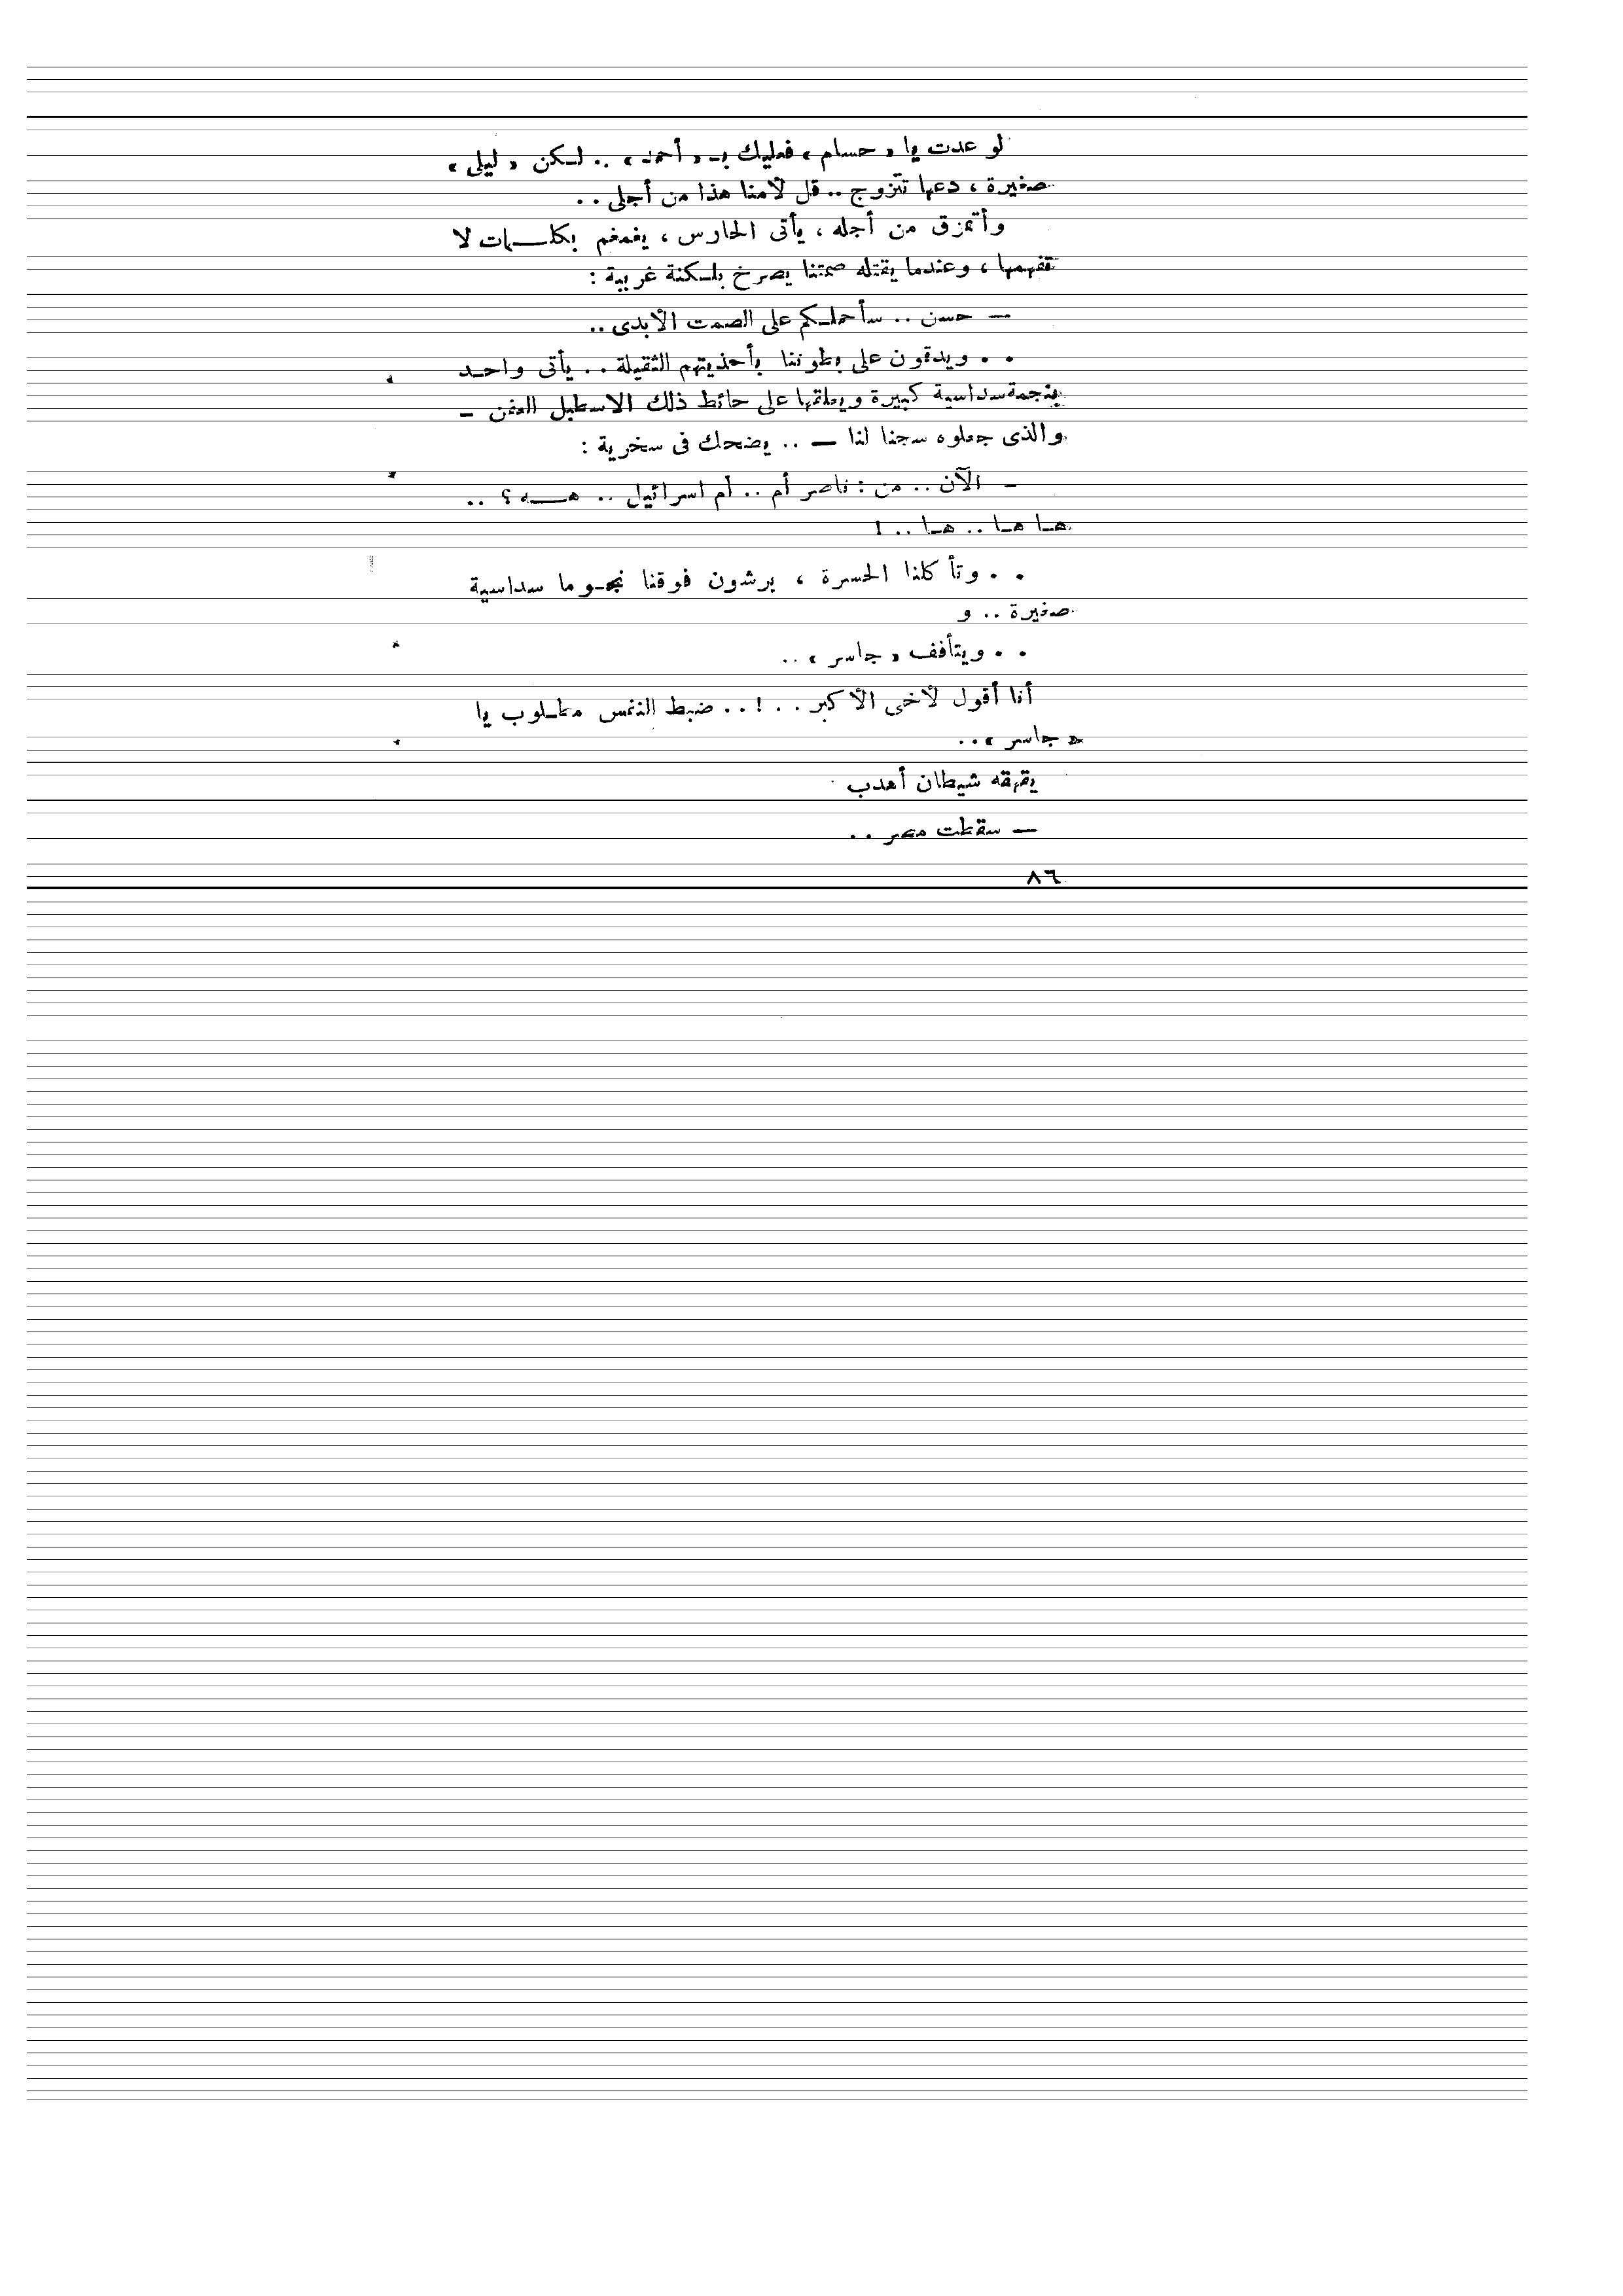 لو عدت يا « حسام » فعليك بـ « أحمد » .. لـكن « ليلى »
صغيرة ، دعها تتزوج .. قل لأمنا هذا من أجلى ..
وأتمزق من أجله ، يأتى الحارس ، يغمغم بكلـــمات لا
نفهمها ، وعندما يقتله صمتنا يصرخ بلـكنة غريبة :
— حسن .. سأحملـكم على الصمت الأبدى ..
. . ويدقون على بطوننا بأحذيتهم الثقيلة . . يأتى واحـد
بنجمة سداسية كبيرة ويعلقها على حائط ذلك الاسطبل العفن —
والذى جعلوه سجنا لنا — .. يضحك فى سخرية :
— الآن .. من : ناصر أم .. أم اسرائيل .. هـــه ؟ ..
هـا هـا .. هـا .. !
. . وتأكلنا الحسرة ، يرشون فوقنا نجـوما سداسية
صغيرة .. و
. . ويتأفف « جاسر » ..
أنا أقول لأخى الأكبر . . ! . . ضبط النفس مطـلوب يا
« جاسر » ..
يقهقه شيطان أهدب
— سقطت مصر . .
٨٦